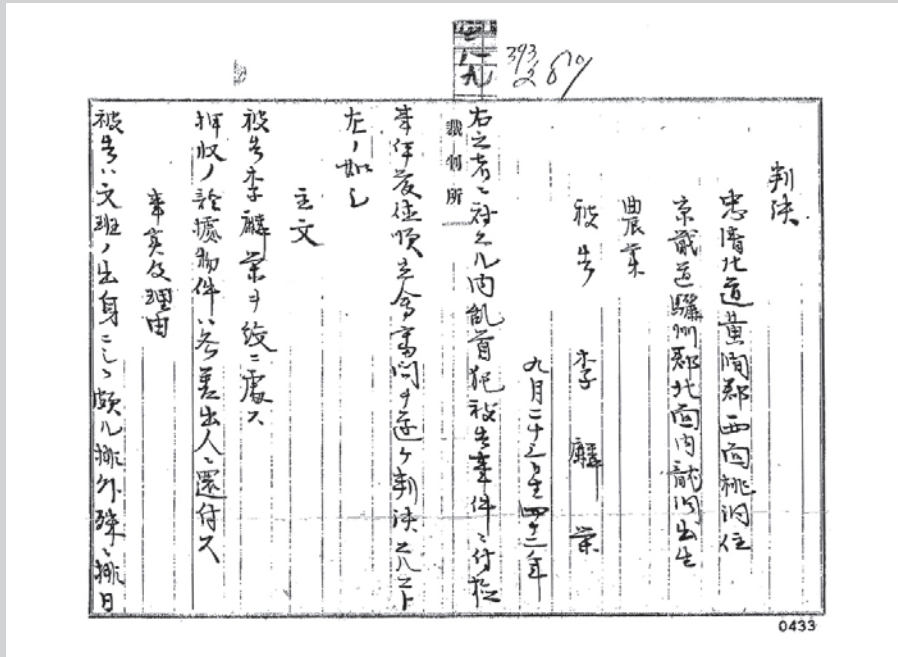 393
判決
忠清北道黄澗郡西面桃洞住
京畿道驪州郡北面内龍洞出生
農業
被告 李麟榮
九月二十三日生 四十二年
裁判所
右之者ニ対スル内乱首犯被告事件ニ付検
事 立会審問ヲ遂ケ判決スルコト
左ノ如シ
主文
被告李麟榮ヲ絞ニ處ス
押収ノ証據物件ハ各差出人ニ還付ス
事実及理由
被告ハ文班ノ出身ニシテ頗ル排外殊ニ排日
0433